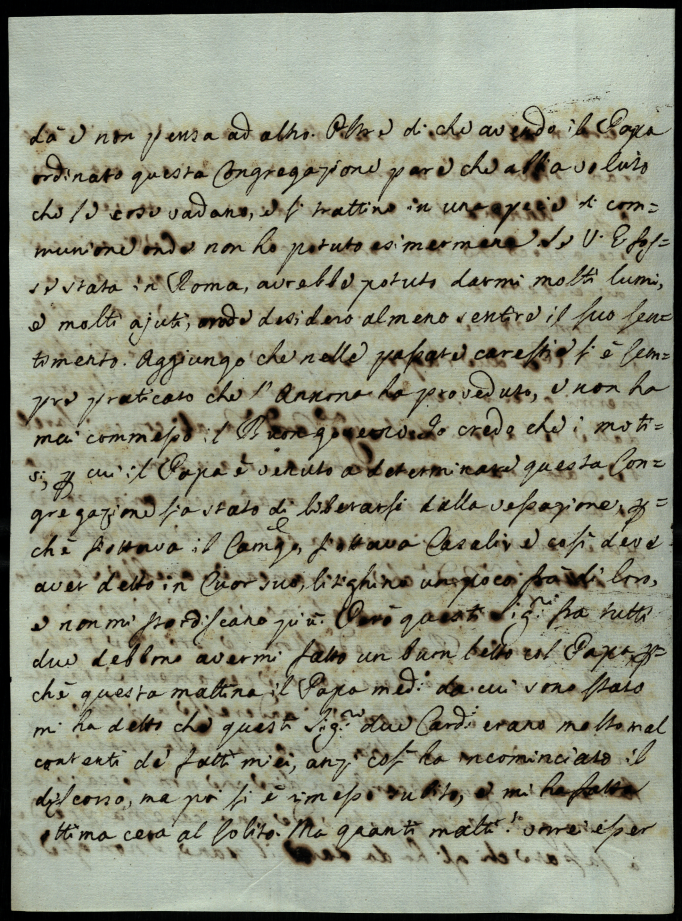 dà e non pensa ad altro. Oltre di che avendo il Papa
ordinato questa Congregazione pare che abbia voluto
che le cose vadano, e si trattino in una specie di com=
munione onde non ho potuto esimermene se V. E. fos=
se stata in Roma, avrebbe potuto darmi molti lumi,
e molti ajuti, onde desidero almeno sentire il suo sen=
timento. Aggiungo che nelle passate carestie si è sem=
pre praticato che l'Annona ha proveduto, e non ha
mai commesso il Buon governo. Io credo che i moti=
vi, p cui il Papa è venuto a determinare questa Con=
gregazione sia stato di liberarsi dalla vessazione, p=
chè frottava il Camgo, frottava Casali, e così deve
aver detto in Cuor suo, litighino un poco frà di loro,
e non mi stordiscano più. Però questi Sig.ri fra tutti
due debbono avermi fatto un buon letto col Papa, p=
chè questa mattina il Papa med.o da cui sono stato
mi ha detto che questi Sig.ri due Card.i erano molto mal
contenti de fatti miei, anzi così ha incominciato il
discorso, ma poi si è rimesso subito, e mi ha fatto
ottima cera al solito. Ma quanti matti! vorrei esser